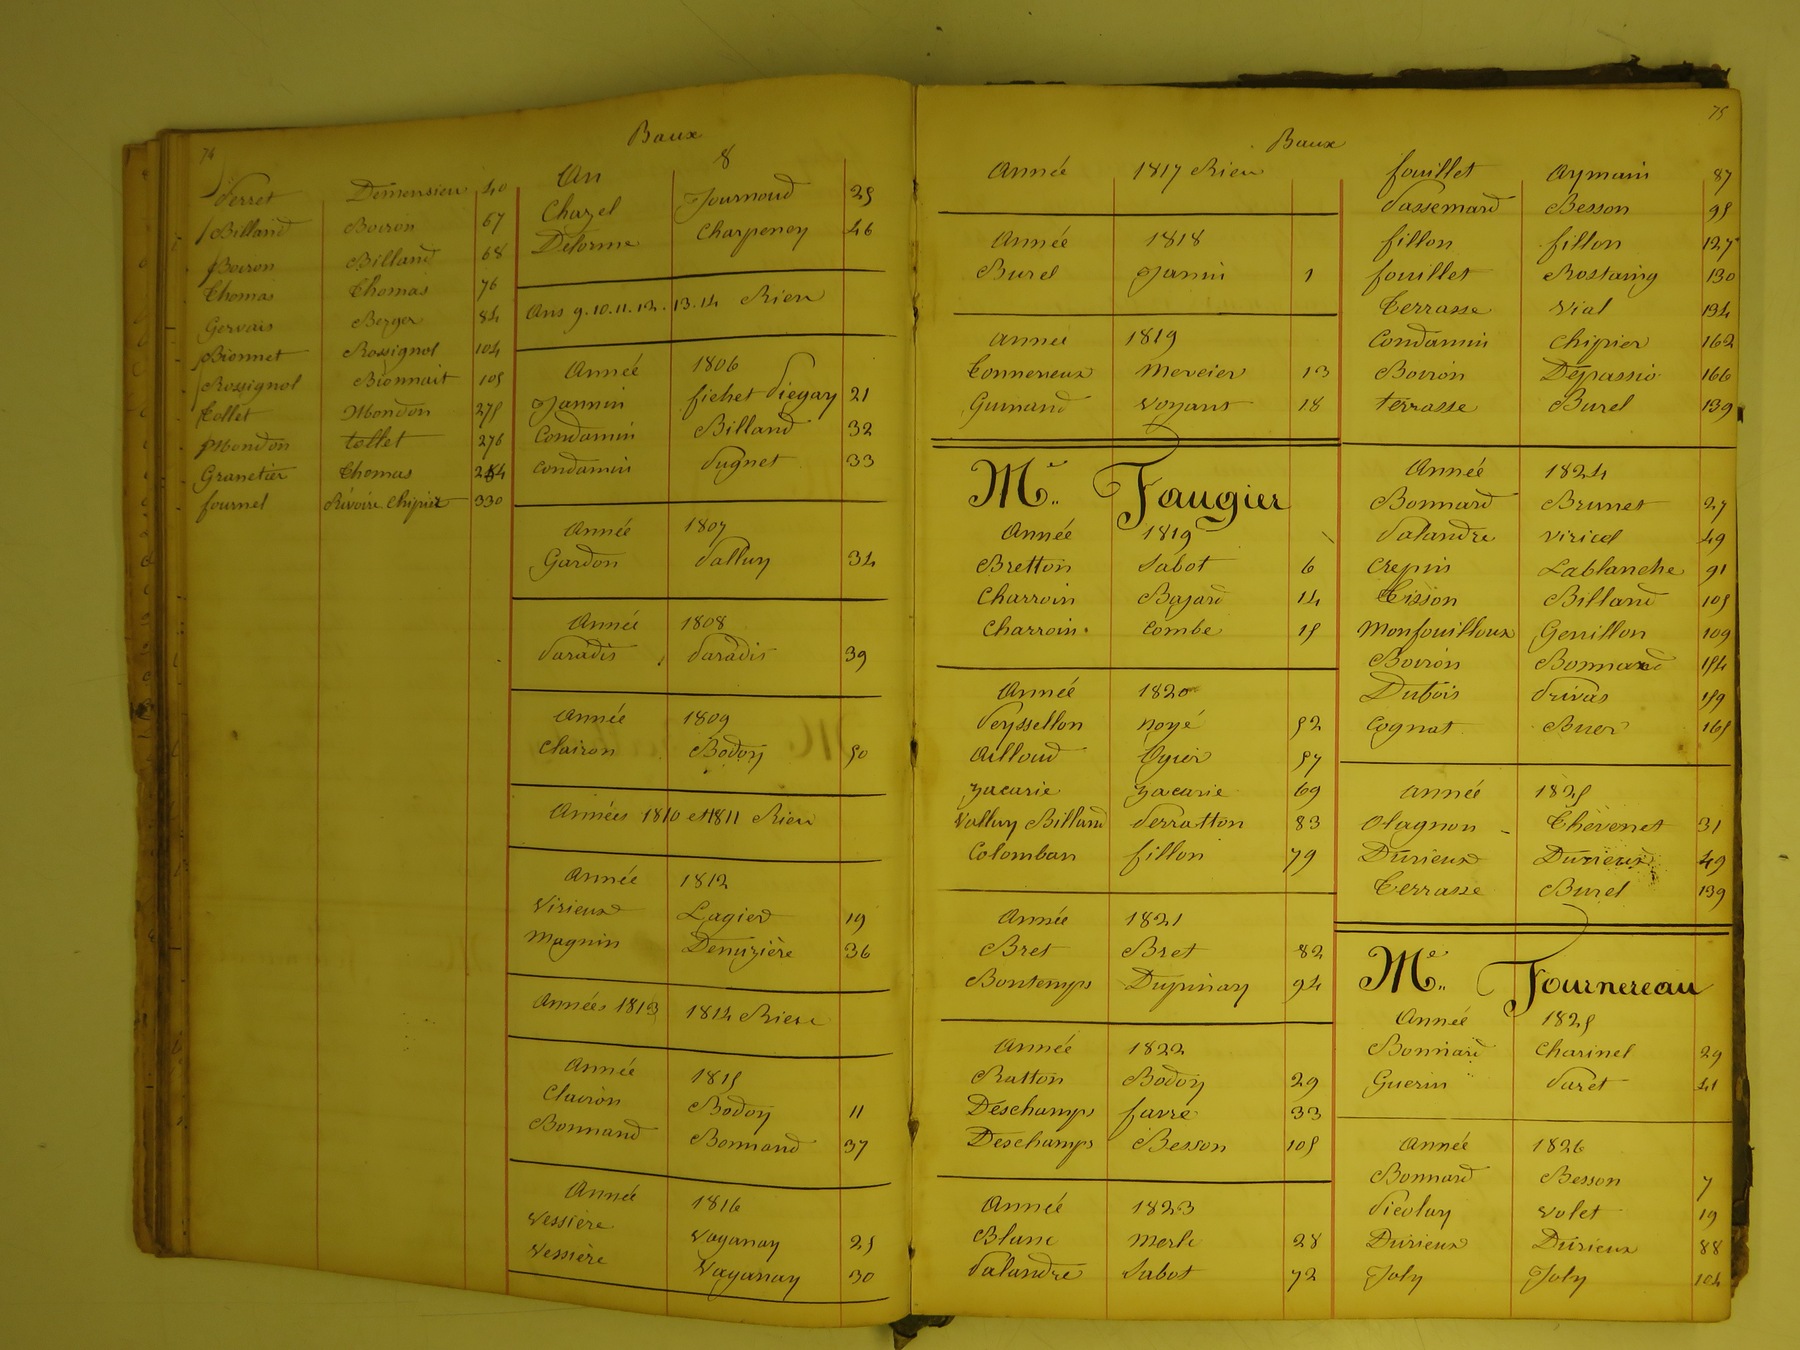 74
Baux
Perret Demensieu 40
Billand Boiron 67
Boiron Billand 68
Thomas Thomas 76
Gervais Berger 84
Bionnet Rossignol 104
Rossignol Bionnait 105
Tollet Mondon 275
Mondon tollet 276
Granetier Thomas 284
fournel Rivoire Chipier 330
An 8
Chazel Journoud 25
Delorme Charpenay 46
Ans 9.10.11.12.13.14 Rien
Année 1806
Jannin fichet Piegay 21
Condamin Billand 32
Condamin Pugnet 33
Année 1807
Gardon Palluy 34
Année 1808
Paradis Paradis 39
Année 1809
Clairon Bodoy 50
Années 1810 et 1811 Rien
Année 1812
Virieux Lagier 19
Magnin Denuzière 36
Années 1813 1814 Rien
Année 1815
Clairon Bodoy 11
Bonnand Bonnand 37
Année 1816
Vessière Vaganay 25
Vessière Vaganay 30
75
Baux
Année 1817 Rien
Année 1818
Burel Jamin 1
Année 1819
Tonnerieux Mercier 13
Guinand Voyant 18
Me. Faugier
Année 1819
Bretton Sabot 6
Charroin Bajard 14
Charroin Combe 15
Année 1820
Peyssellon Noyé 52
Ailloud Ogier 57
Zacarie Zacarie 69
Valluy Billand Perratton 83
Colomban fillon 79
Année 1821
Bret Bret 82
Bontemps Dupinay 94
Année 1822
Ratton Bodoy 29
Deschamps favre 33
Deschamps Besson 105
Année 1823
Blanc Merle 28
Palandre Sabot 72
fouillet Aymain 87
Passemard Besson 95
fillon fillon 127
fouillet Rostaing 130
Terrasse Vial 134
Condamin Chipier 162
Boiron Depassio 166
terrasse Burel 139
Année 1824
Bonnard Brunet 27
Palandre Viricel 49
Crepin Lablanche 91
Tisson Billand 105
Monfouilloux Genillon 109
Boiron Bonnard 154
Dubois Privas 159
Cognat Buer 165
Année 1825
Olagnon Thevenet 31
Durieux Durieux 49
Terrasse Burel 139
Me. Fournereau
Année 1825
Bonnard Charinel 29
Guerin Paret 41
Année 1826
Bonnard Besson 7
Picolay Volet 19
Durieux Durieux 88
Joly Joly 104